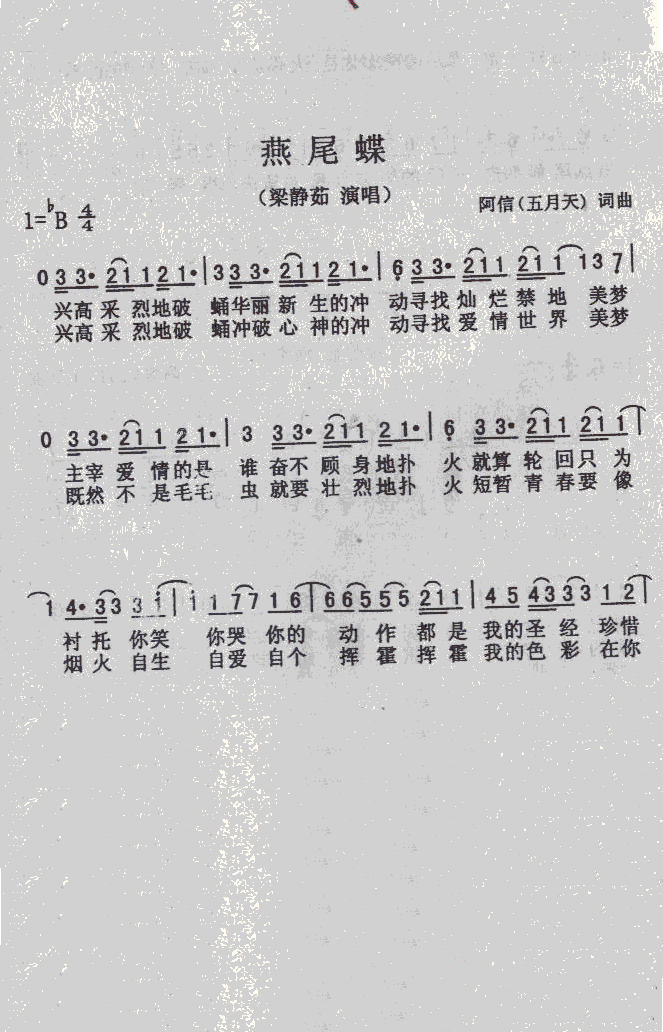 燕尾蝶
（梁静茹 演唱）
阿信（五月天）词曲
1=♭B 4/4
0 3 3· 2 1 1 2 1· | 3 3 3· 2 1 1 2 1· | 6 3 3· 2 1 1 2 1 1 1 3 7 |
兴高 采 烈地破 蛹华丽 新 生的冲 动寻找 灿 烂 禁 地 美梦
兴高 采 烈地破 蛹冲破 心 神的冲 动寻找 爱 情 世 界 美梦
0 3 3· 2 1 1 2 1· | 3 3 3· 2 1 1 2 1· | 6 3 3· 2 1 1 2 1 1 |
主宰 爱 情的是 谁 奋不 顾 身地扑 火 就算 轮 回只 为
既然 不 是毛毛 虫 就要 壮 烈地扑 火 短暂 青 春要 像
1 4· 3 3 3 i | i 1 7 7 1 6 | 6 6 5 5 5 2 1 1 | 4 5 4 3 3 3 1 2 |
衬 托 你笑 你哭 你的 动 作 都 是 我的圣 经 珍惜
烟 火 自生 自爱 自个 挥 霍 挥 霍 我的色 彩 在你